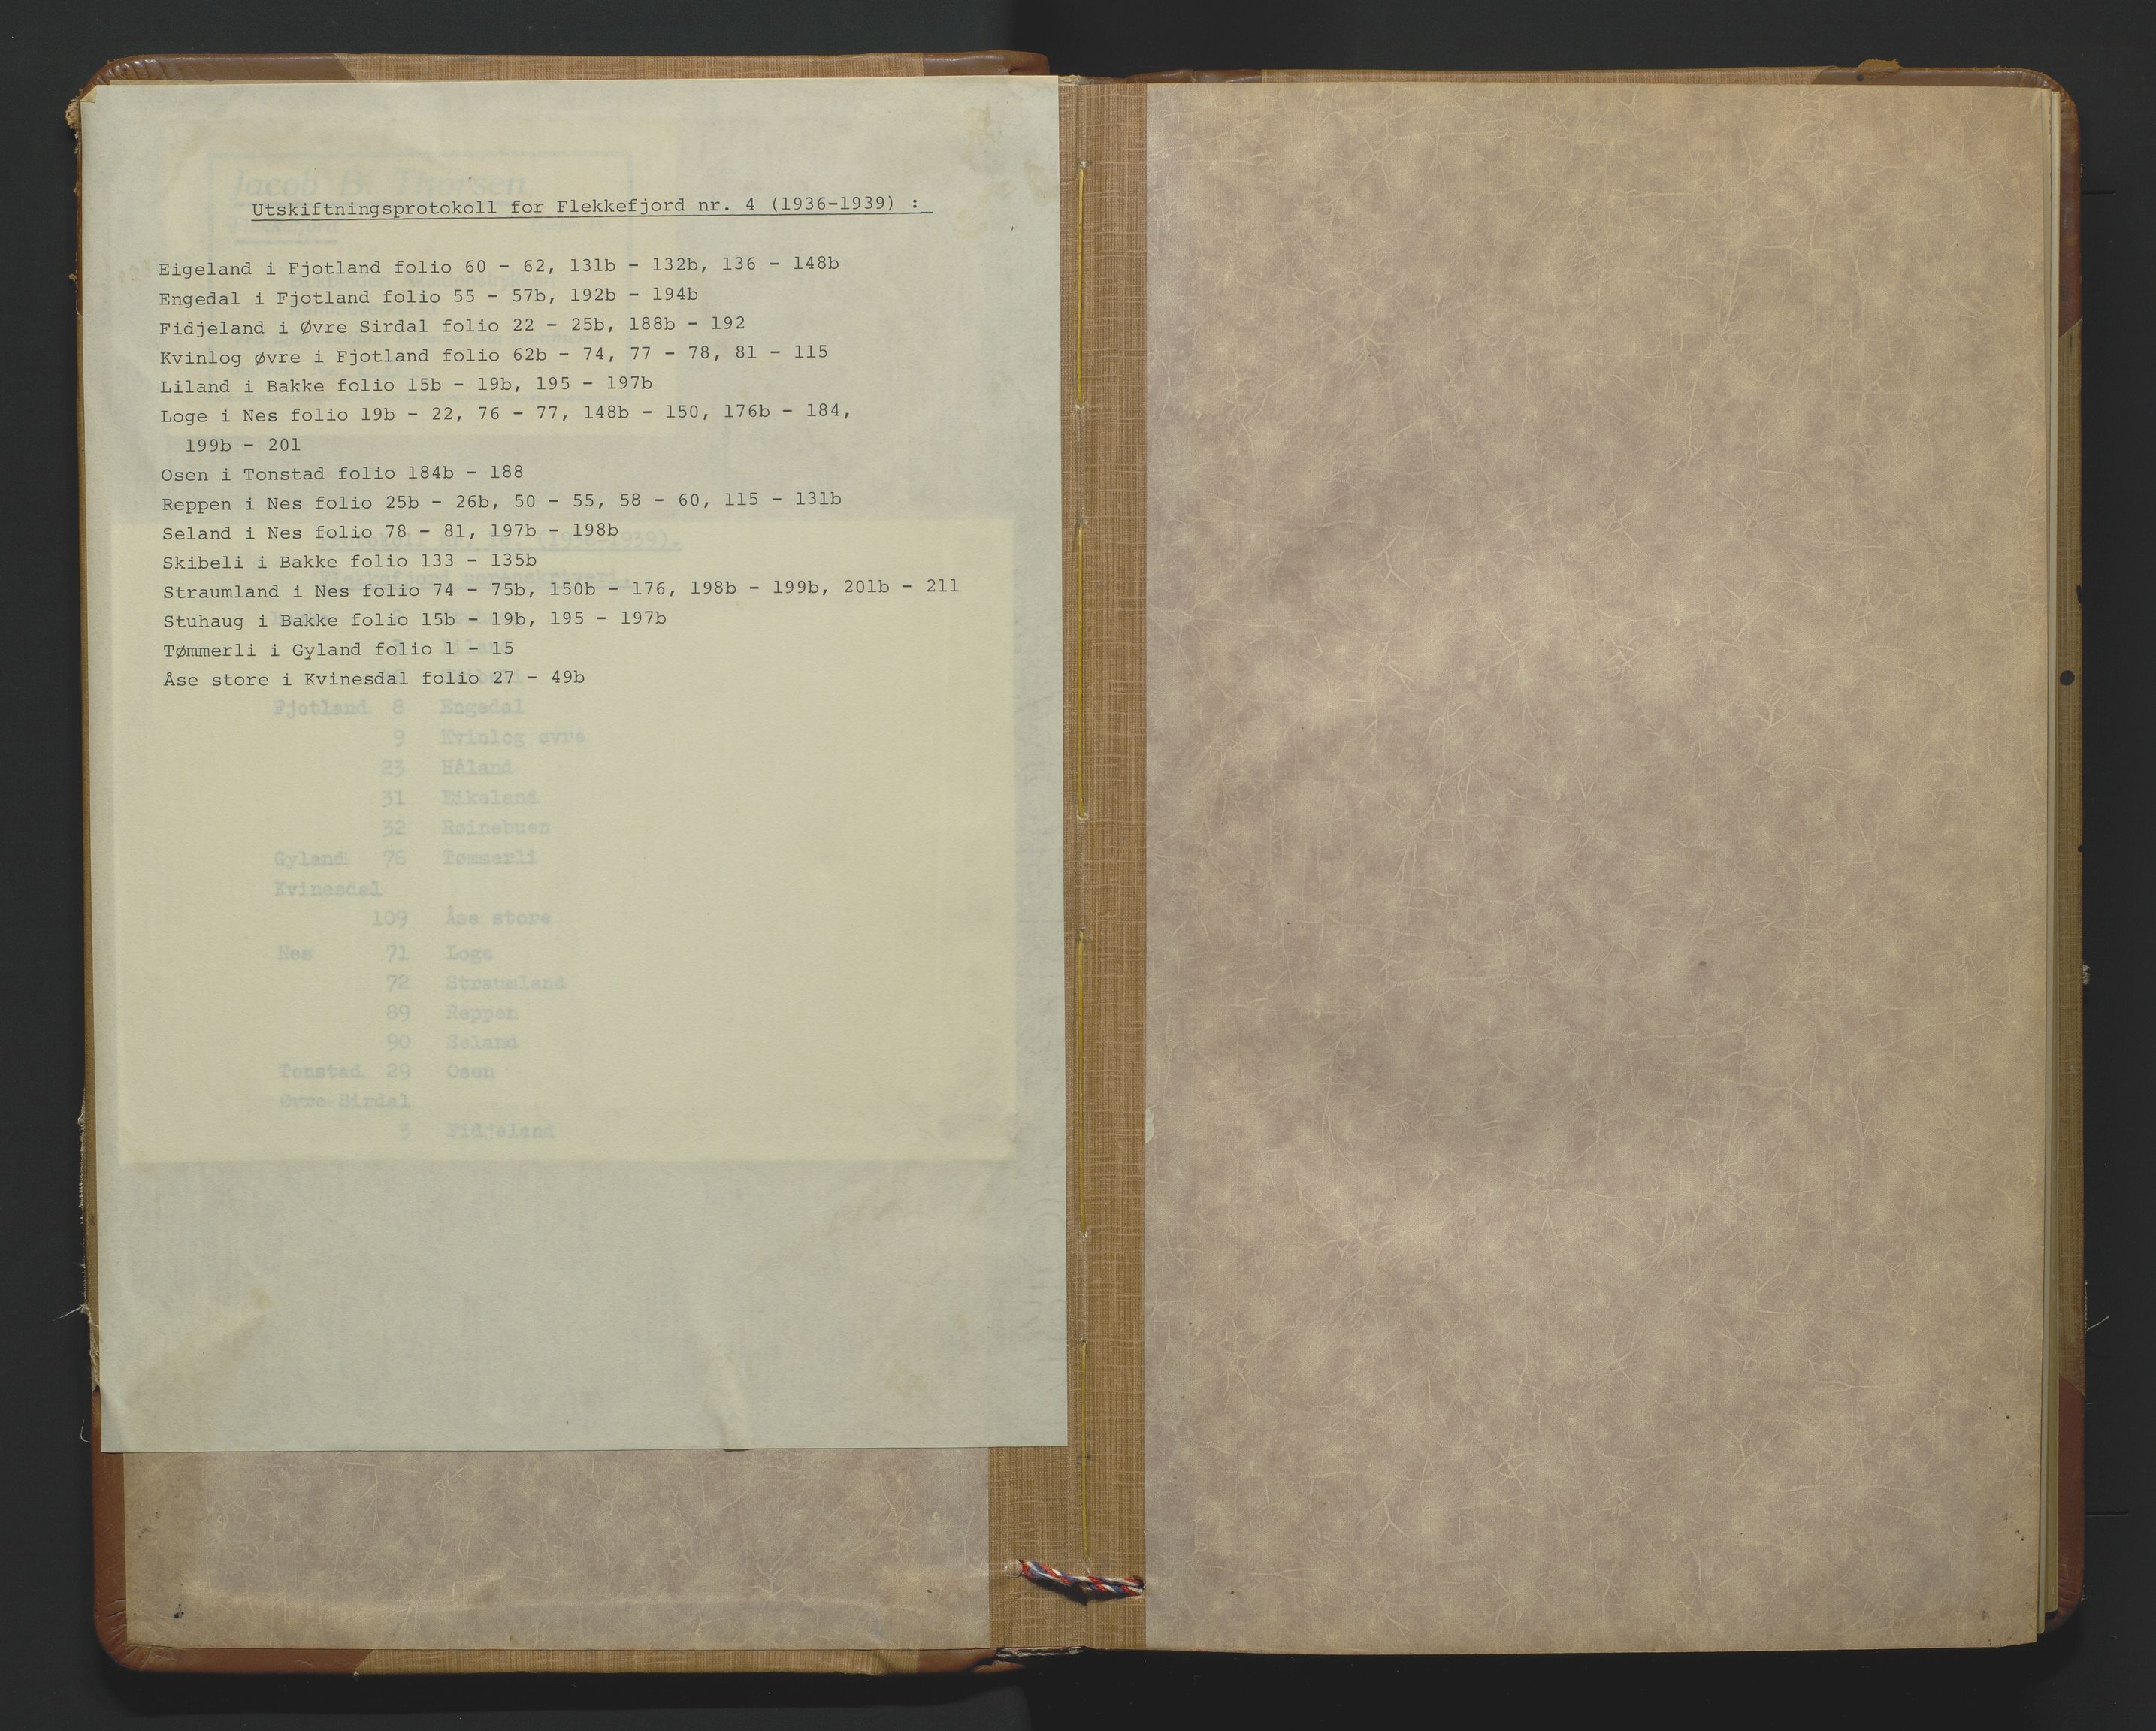 Jacob B. Thorsen
Utskiftningsprotokoll for Flekkefjord nr. 4 (1936-1939) :
Flekkefjord
Eigeland i Fjotland folio 60 - 62, 131b - 132b, 136 - 148b
Engedal i Fjotland folio 55 - 57b, 192b - 194b
Fidjeland i Øvre Sirdal folio 22 - 25b, 188b - 192
Kvinlog øvre i Fjotland folio 62b - 74, 77 - 78, 81 - 115
Liland i Bakke folio 15b - 19b, 195 - 197b
Loge i Nes folio 19b - 22, 76 - 77, 148b - 150, 176b - 184,
199b - 201
Osen i Tonstad folio 184b - 188
Reppen i Nes folio 25b - 26b, 50 - 55, 58 - 60, 115 - 131b
Seland i Nes folio 78 - 81, 197b - 198b
Skibeli i Bakke folio 133 - 135b
Straumland i Nes folio 74 - 75b, 150b - 176, 198b - 199b, 201b - 211
Stuhaug i Bakke folio 15b - 19b, 195 - 197b
Tømmerli i Gyland folio 1 - 15
Åse store i Kvinesdal folio 27 - 49b
Fjotland 8 Engedal
9 Kvinlog øvre
23 Håland
31 Eikeland
32 Røinebuen
Gyland 76 Tømmerli
Kvinesdal
109 Åse store
Nes 71 Loge
72 Straumland
89 Reppen
90 Seland
Tonstad 29 Osen
Øvre Sirdal
3 Fidjeland